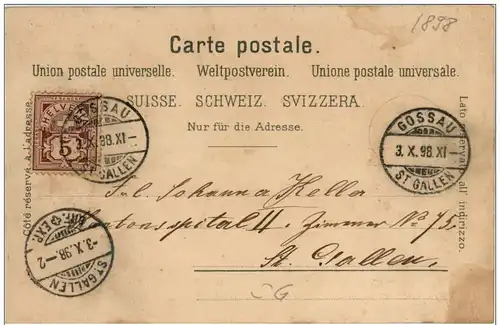 1898
Carte postale.
Union postale universelle. Weltpostverein. Unione postale universale.
SUISSE. SCHWEIZ. SVIZZERA.
Nur für die Adresse.
Côté réservé à l'adresse.
Lato riservato all indirizzo.
HELVETIA
5
GOSSAU
3. X. 98. XI—
ST GALLEN
GOSSAU
3. X. 98. XI—
ST GALLEN
Frl. Johanna Keller
Kantonsspital II. Zimmer No 73.
St. Gallen.
BRF. EXP.
-3. X. 98.-2
ST. GALLEN
SG